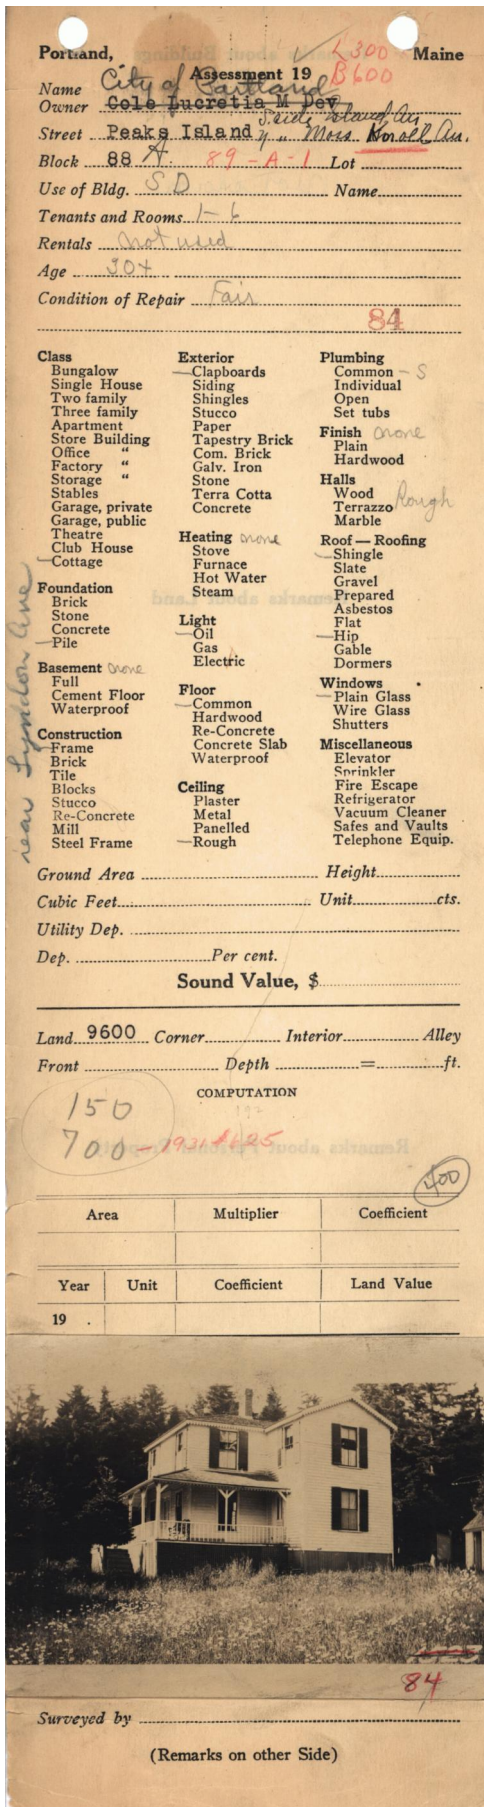 Portland, Maine
Assessment 19 L300
B600
City of Portland
Name
Owner Cole Lucretia M Dev
Street Peaks Island Moss Knoll Av.
Block 88 A 89-A-1 Lot
Use of Bldg. S D Name
Tenants and Rooms 1-6
Rentals not used
Age 30+
Condition of Repair Fair
84
Class
Bungalow
Single House
Two family
Three family
Apartment
Store Building
Office "
Factory "
Storage "
Stables
Garage, private
Garage, public
Theatre
Club House
Cottage
Foundation
Brick
Stone
Concrete
Pile
Basement none
Full
Cement Floor
Waterproof
Construction
Frame
Brick
Tile
Blocks
Stucco
Re-Concrete
Mill
Steel Frame
Exterior
Clapboards
Siding
Shingles
Stucco
Paper
Tapestry Brick
Com. Brick
Galv. Iron
Stone
Terra Cotta
Concrete
Heating none
Stove
Furnace
Hot Water
Steam
Light
Oil
Gas
Electric
Floor
Common
Hardwood
Re-Concrete
Concrete Slab
Waterproof
Ceiling
Plaster
Metal
Panelled
Rough
Plumbing
Common - S
Individual
Open
Set tubs
Finish none
Plain
Hardwood
Halls
Wood
Terrazzo Rough
Marble
Roof — Roofing
Shingle
Slate
Gravel
Prepared
Asbestos
Flat
Hip
Gable
Dormers
Windows
Plain Glass
Wire Glass
Shutters
Miscellaneous
Elevator
Sprinkler
Fire Escape
Refrigerator
Vacuum Cleaner
Safes and Vaults
Telephone Equip.
near Lyndon Ave
Ground Area Height
Cubic Feet Unit cts.
Utility Dep.
Dep. Per cent.
Sound Value, $
Land 9600 Corner Interior Alley
Front Depth = ft.
COMPUTATION
150
700 - 1931 #625
400
Area Multiplier Coefficient
Year Unit Coefficient Land Value
19 .
84
Surveyed by
(Remarks on other Side)